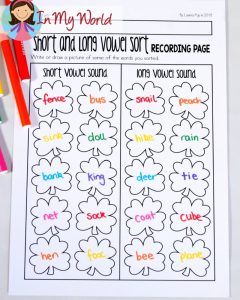 In My World
By Lavinia Pop © 2013
Short and Long Vowel Sort RECORDING PAGE
Write or draw a picture of some of the words you sorted.
Short Vowel Sound
Long Vowel Sound
fence bus snail peach
sink doll bike rain
bank king deer tie
net sock coat cube
hen fox bee plane